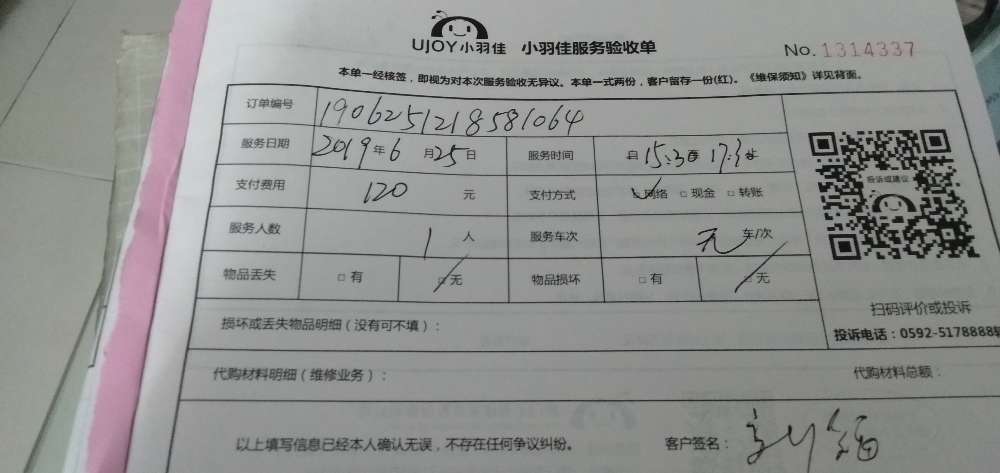 UJOY小羽佳 小羽佳服务验收单
No. 1314337
本单一经核签，即视为对本次服务验收无异议。本单一式两份，客户留存一份(红)。《维保须知》详见背面。
订单编号 1906251218581064
服务日期 2019年6月25日 服务时间 自15:30至17:3
支付费用 120 元 支付方式 网络 □现金 □转账
服务人数 1 人 服务车次 无 车/次
物品丢失 □有 □无 物品损坏 □有 □无
投诉或建议
扫码评价或投诉
损坏或丢失物品明细（没有可不填）：
投诉电话：0592-5178888转
代购材料明细（维修业务）： 代购材料总额：
以上填写信息已经本人确认无误，不存在任何争议纠纷。 客户签名：